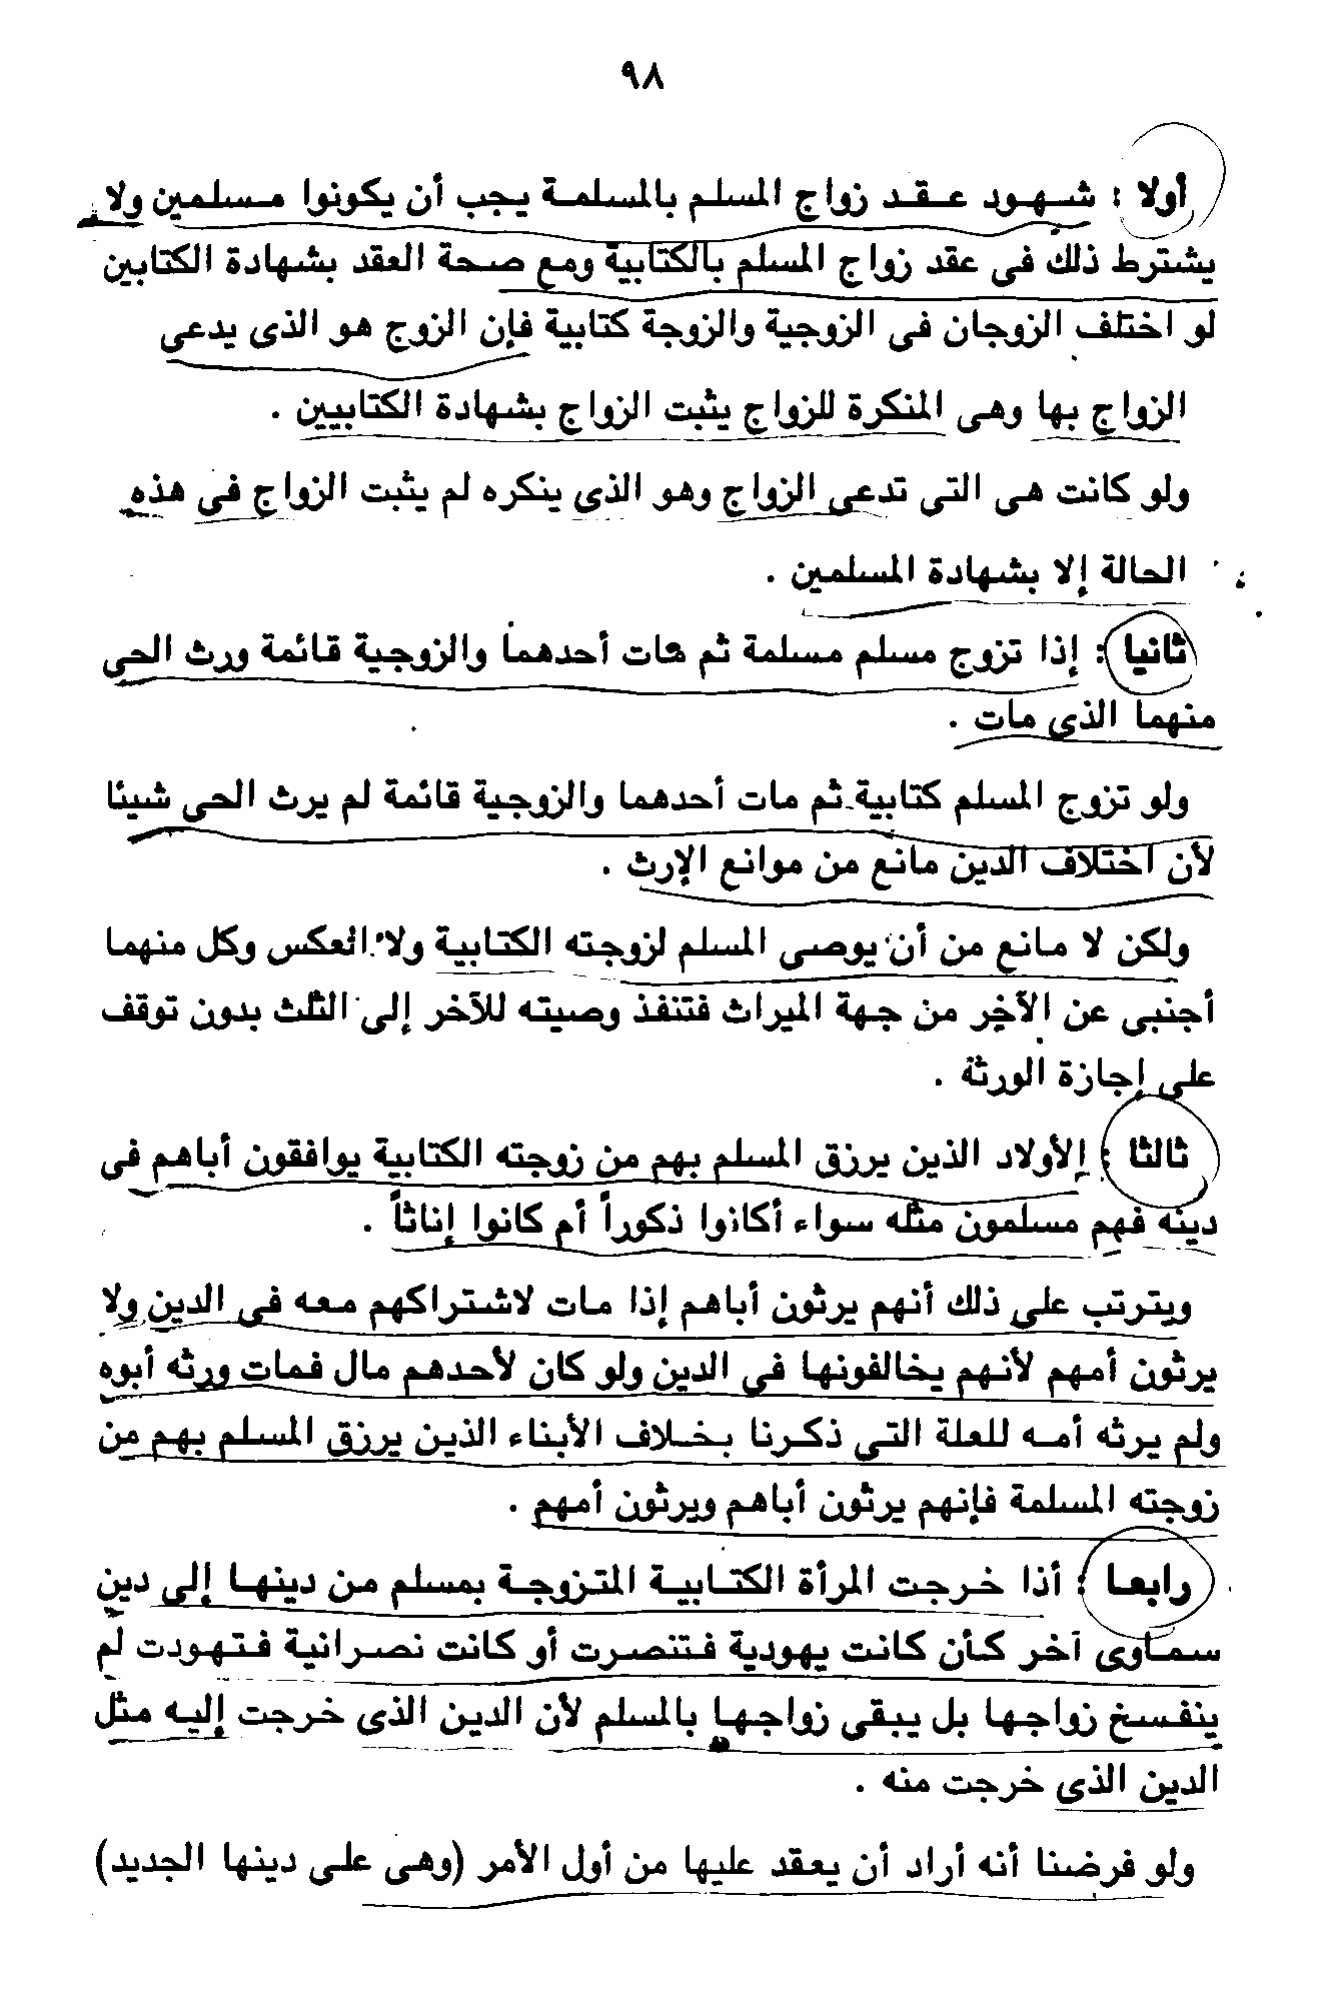 ٩٨
أولا : شهود عقد زواج المسلم بالمسلمة يجب أن يكونوا مسلمين ولا
يشترط ذلك فى عقد زواج المسلم بالكتابية ومع صحة العقد بشهادة الكتابين
لو اختلف الزوجان فى الزوجية والزوجة كتابية فإن الزوج هو الذى يدعى
الزواج بها وهى المنكرة للزواج يثبت الزواج بشهادة الكتابيين .
ولو كانت هى التى تدعى الزواج وهو الذى ينكره لم يثبت الزواج فى هذه
الحالة إلا بشهادة المسلمين .
ثانيا : إذا تزوج مسلم مسلمة ثم مات أحدهما والزوجية قائمة ورث الحى
منهما الذى مات .
ولو تزوج المسلم كتابية ثم مات أحدهما والزوجية قائمة لم يرث الحى شيئا
لأن اختلاف الدين مانع من موانع الإرث .
ولكن لا مانع من أن يوصى المسلم لزوجته الكتابية ولا العكس وكل منهما
أجنبى عن الآخر من جهة الميراث فتنفذ وصيته للآخر إلى الثلث بدون توقف
على إجازة الورثة .
ثالثا : الأولاد الذين يرزق المسلم بهم من زوجته الكتابية يوافقون أباهم فى
دينه فهم مسلمون مثله سواء أكانوا ذكوراً أم كانوا إناثاً .
ويترتب على ذلك أنهم يرثون أباهم إذا مات لاشتراكهم معه فى الدين ولا
يرثون أمهم لأنهم يخالفونها فى الدين ولو كان لأحدهم مال فمات ورثه أبوه
ولم يرثه أمه للعلة التى ذكرنا بخلاف الأبناء الذين يرزق المسلم بهم من
زوجته المسلمة فإنهم يرثون أباهم ويرثون أمهم .
رابعا : أذا خرجت المرأة الكتابية المتزوجة بمسلم من دينها إلى دين
سماوى آخر كأن كانت يهودية فتنصرت أو كانت نصرانية فتهودت لم
ينفسخ زواجها بل يبقى زواجها بالمسلم لأن الدين الذى خرجت إليه مثل
الدين الذى خرجت منه .
ولو فرضنا أنه أراد أن يعقد عليها من أول الأمر (وهى على دينها الجديد)